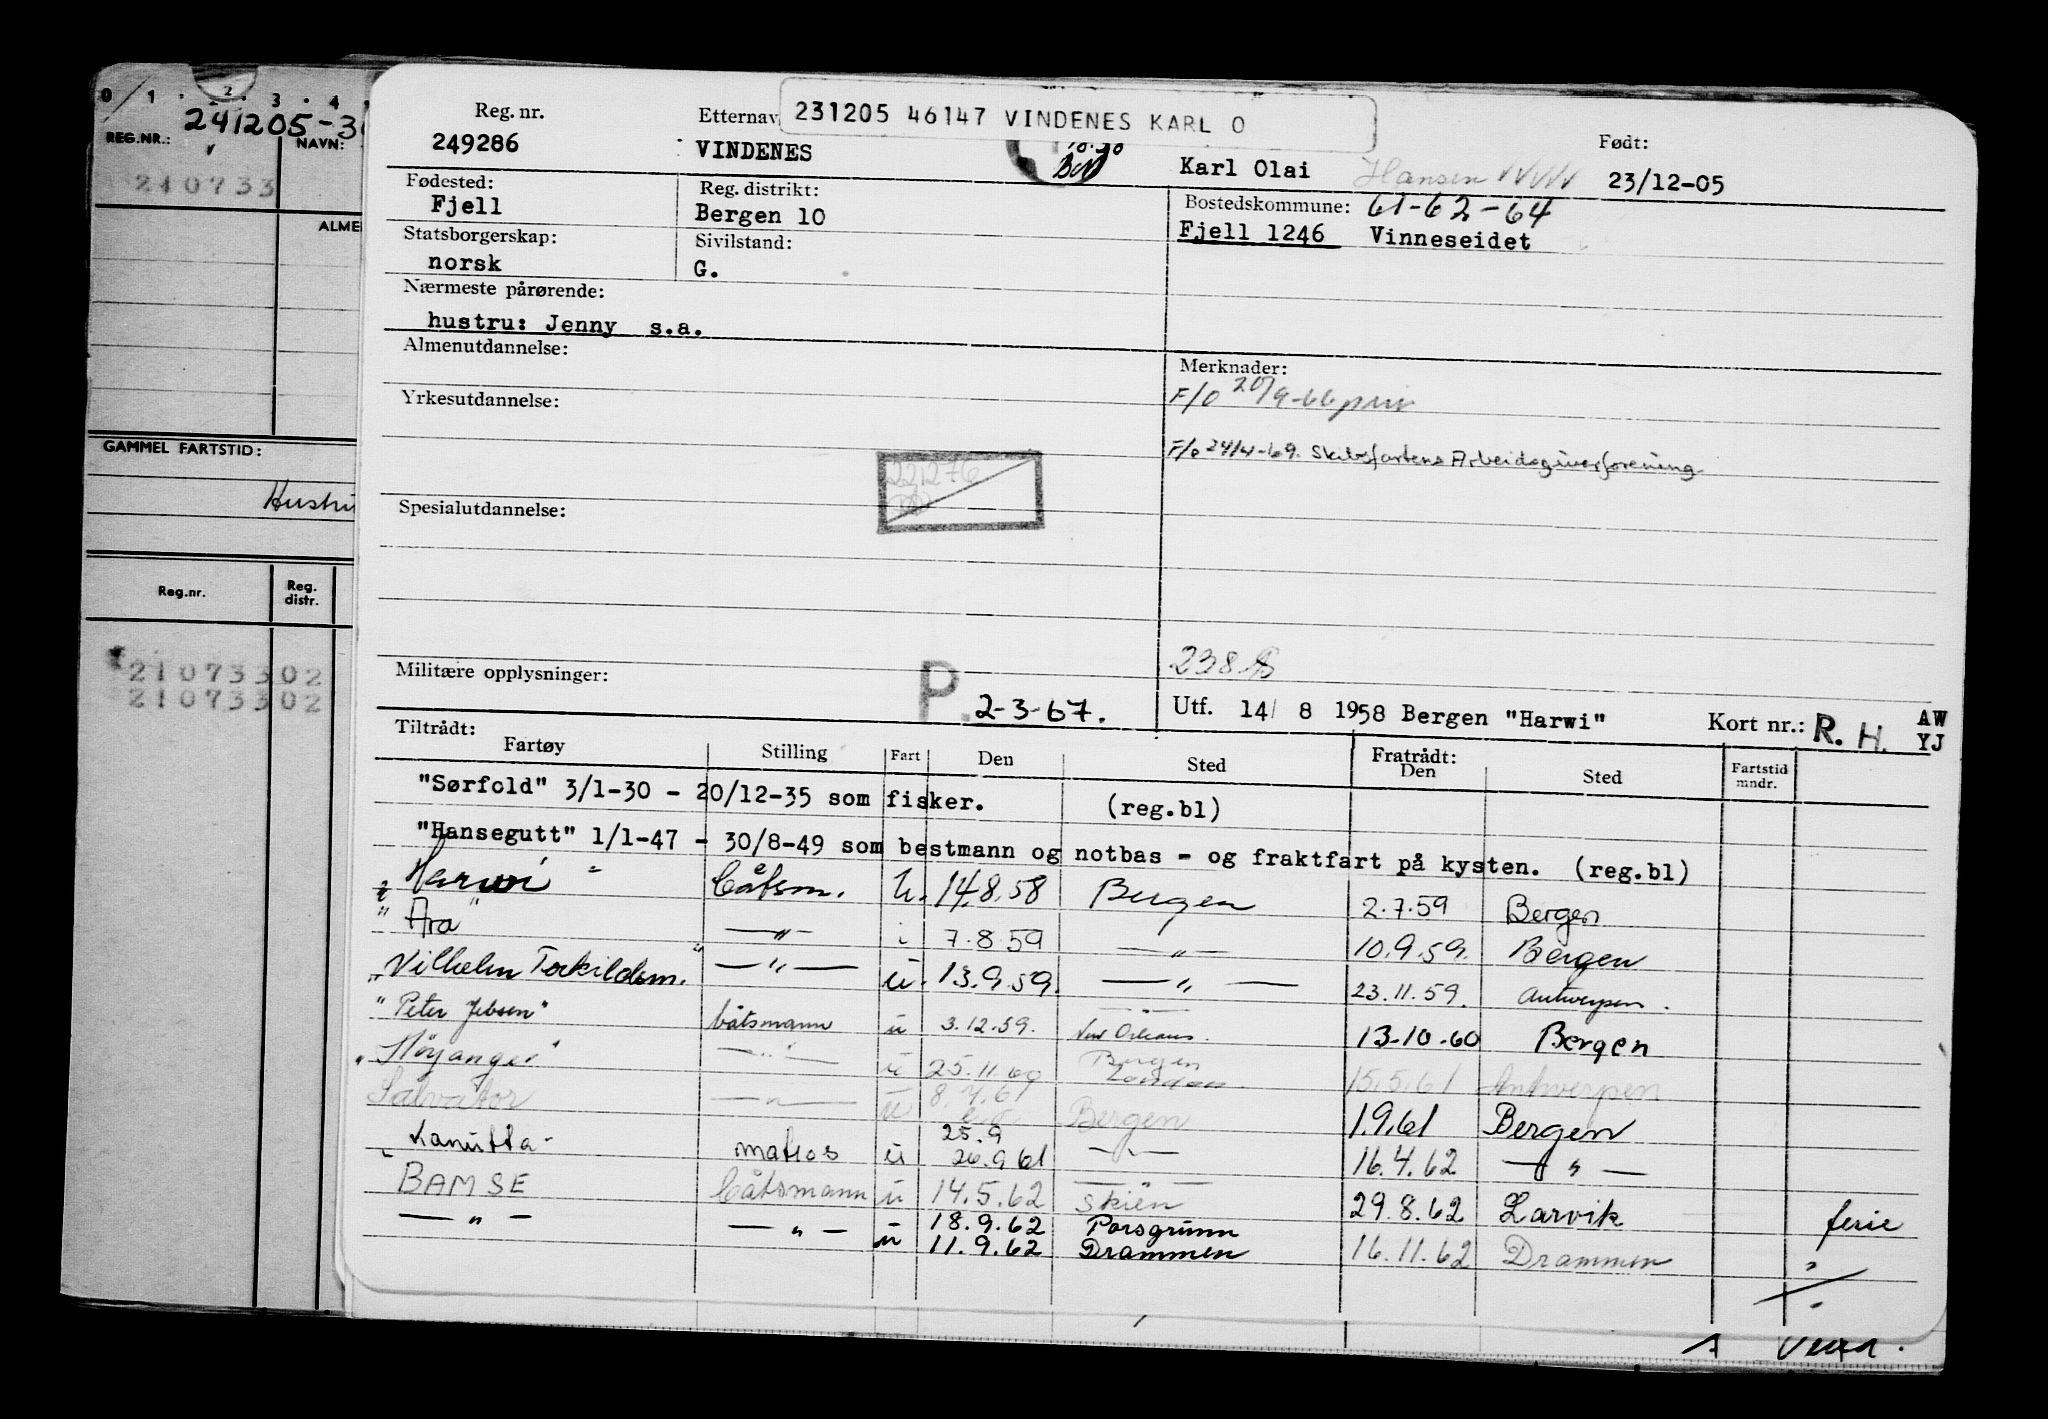 0 1 2 3 4
REG.NR.: 241205-3
NAVN:
210733
ALME
GAMMEL FARTSTID:
Hustru
Reg.nr. Reg. distr.
21073302
21073302
231205 46147 VINDENES KARL O
Reg. nr. Etternav Født:
249286 VINDENES Karl Olai Hansen 23/12-05
Fødested: Reg. distrikt: Bostedskommune: 61-62-64
Fjell Bergen 10 Fjell 1246 Vinneseidet
Statsborgerskap: Sivilstand:
norsk G.
Nærmeste pårørende:
hustru: Jenny s.a.
Almenutdannelse: Merknader:
F/o 20/9-66 priv
Yrkesutdannelse:
F/o 24/4-69. Skibsfartens Arbeidsgiverforening
221276
Spesialutdannelse:
238
Militære opplysninger: P. 2-3-67. Utf. 14/ 8 1958 Bergen "Harwi" Kort nr.: R. H. AW YJ
Tiltrådt: Fratrådt:
Fartøy Stilling Fart Den Sted Den Sted Fartstid mndr.
"Sørfold" 3/1-30 - 20/12-35 som fisker. (reg.bl)
"Hansegutt" 1/1-47 - 30/8-49 som bestmann og notbas - og fraktfart på kysten. (reg.bl)
"Harwi" båtsm. u. 14.8.58 Bergen 2.7.59 Bergen
"Ara" —"— i 7.8.59 —"— 10.9.59. Bergen
"Vilhelm Torkildsen" —"— u. 13.9.59. —"— 23.11.59. Antwerpen.
"Peter Jebsen" båtsmann u 3.12.59. New Orleans. 13-10-60 Bergen
"Høyanger" —"— u 25.11.60 Bergen
8.4.61 London. 15.5.61 Antwerpen
Salvator —"— u Bergen 1.9.61 Bergen
25.9
"Lanutta" matros u 26.9.61 —"— 16.4.62 —"—
BAMSE båtsmann u 14.5.62 Skien 29.8.62 Larvik ferie
—"— —"— u 18.9.62 Porsgrunn
11.9.62 Drammen 16.11.62 Drammen "